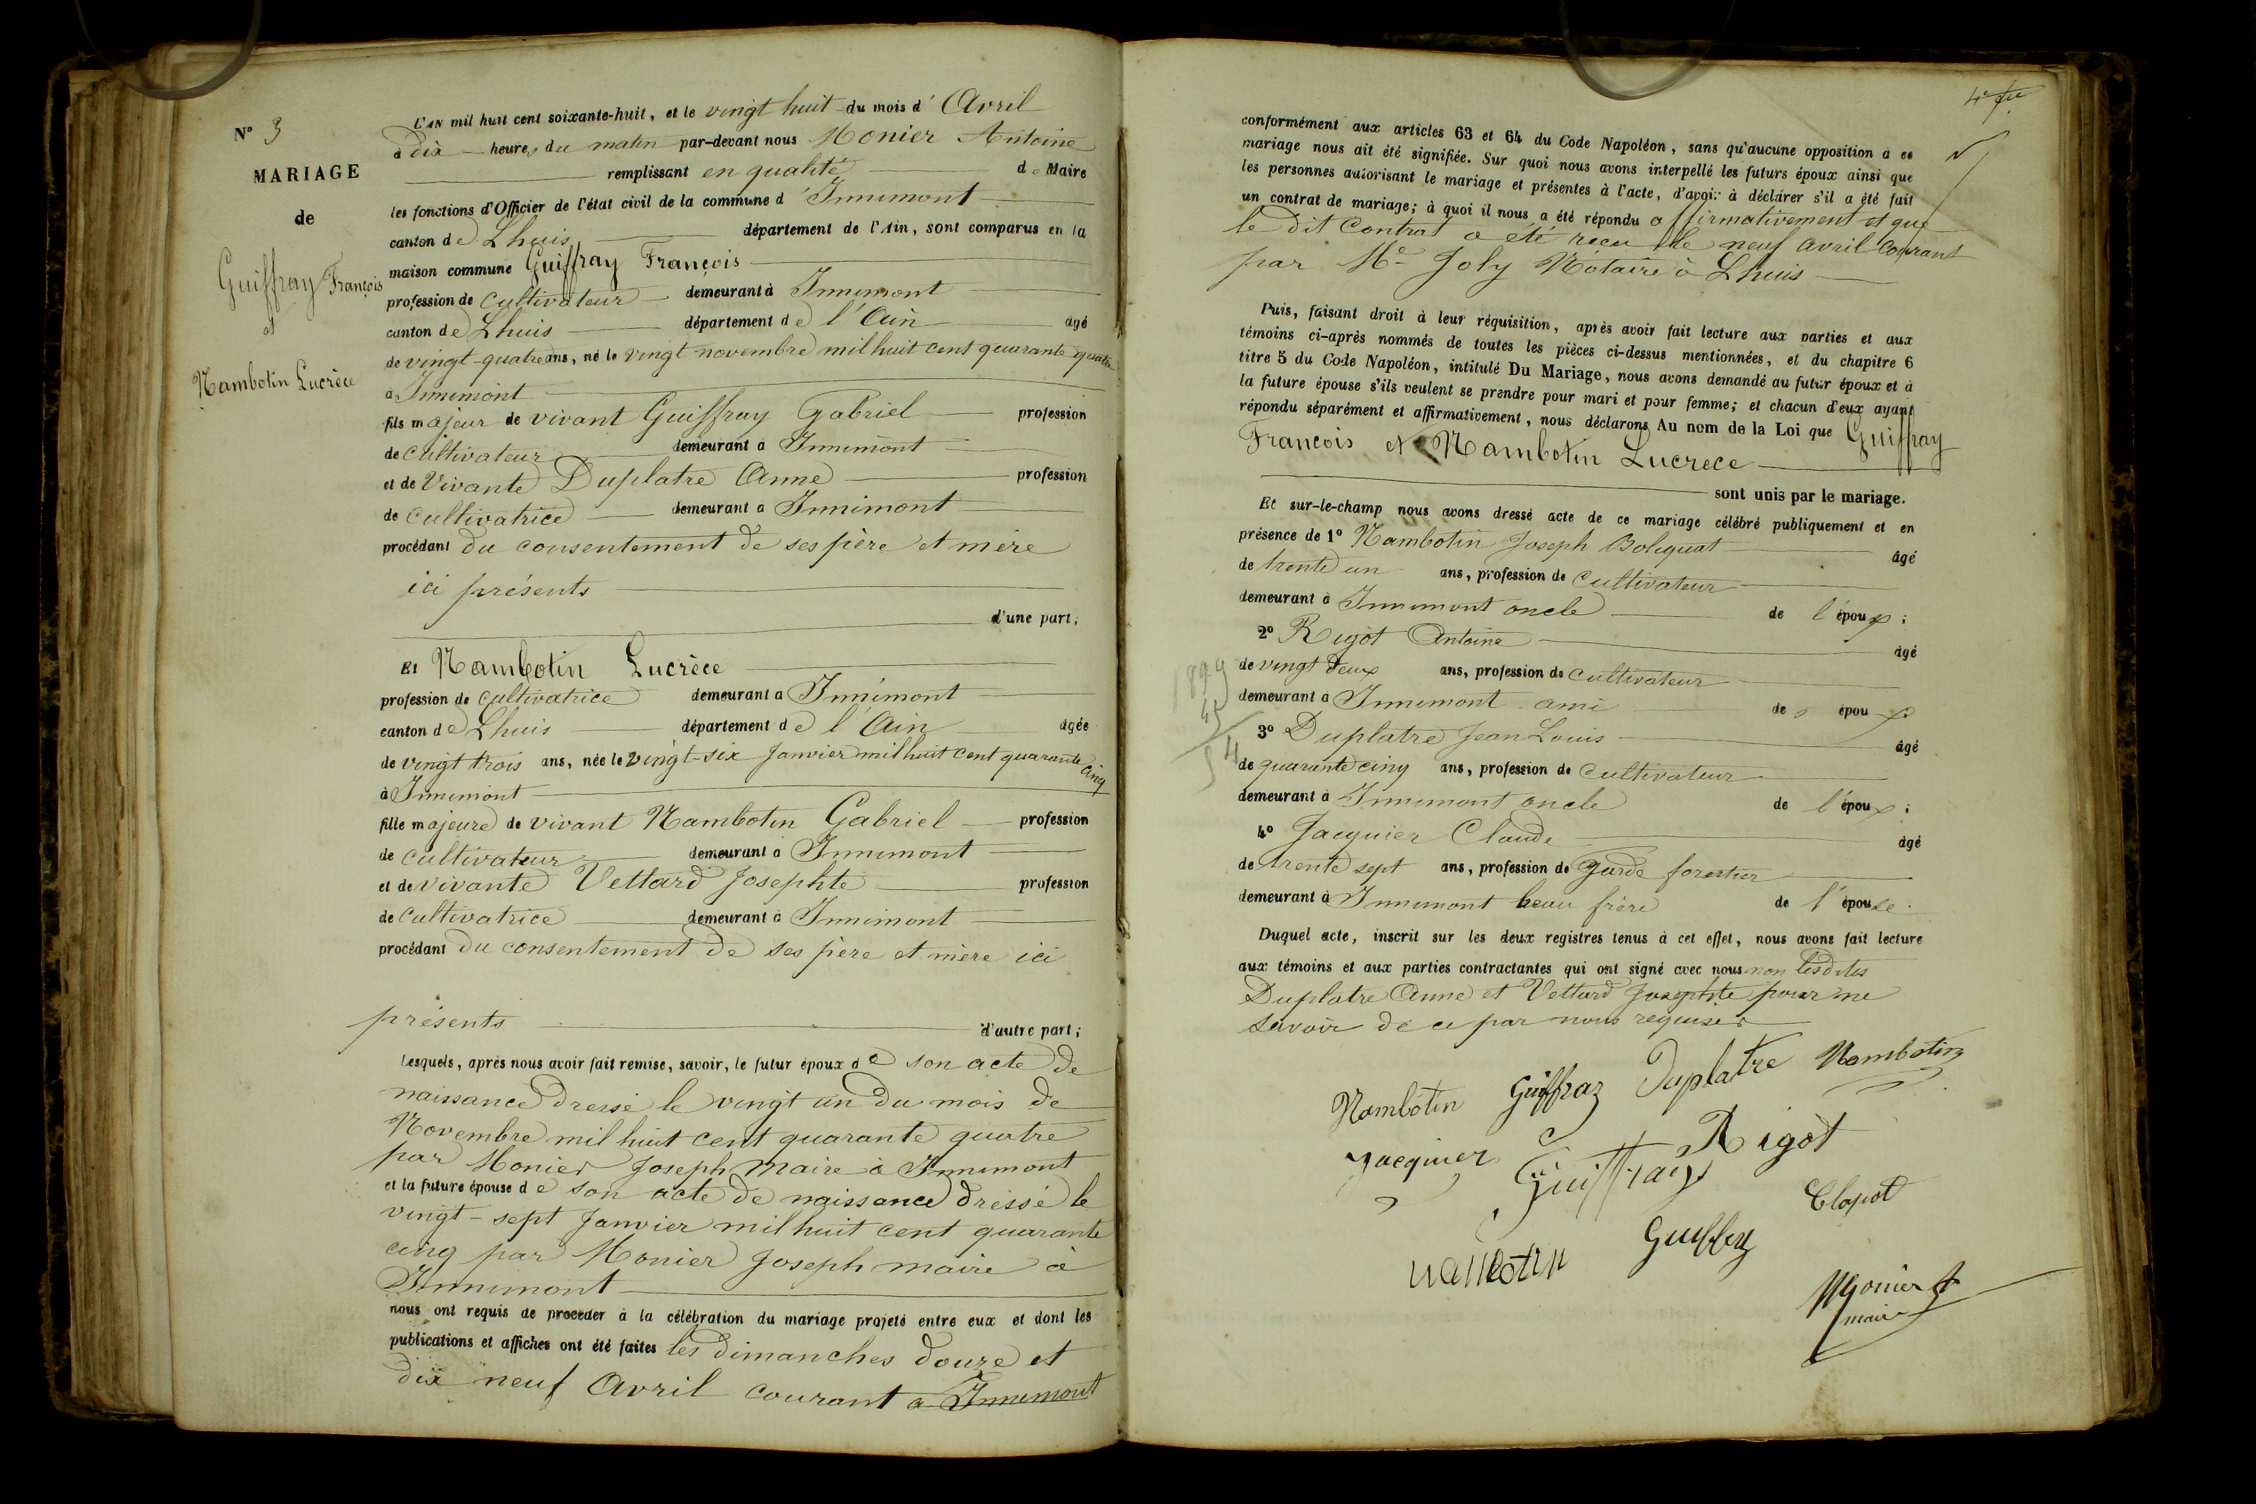 N° 3
MARIAGE
de
Guiffray François
et
Nambotin Lucrèce
L'AN mil huit cent soixante-huit, et le vingt huit du mois d' Avril
à dix heures du matin par-devant nous Monier Antoine
remplissant en qualité de Maire
les fonctions d'Officier de l'état civil de la commune d'Innimont
canton de Lhuis département de l'Ain, sont comparus en la
maison commune Guiffray François
profession de cultivateur demeurant à Innimont
canton de Lhuis département de l'Ain âgé
de vingt-quatre ans, né le vingt novembre mil huit cent quarante quatre
à Innimont
fils majeur de vivant Guiffray Gabriel profession
de cultivateur demeurant à Innimont
et de Vivante Duplatre Anne profession
de cultivatrice demeurant à Innimont
procédant du consentement de ses père et mère
ici présents
d'une part;
Et Nambotin Lucrèce
profession de cultivatrice demeurant à Innimont
canton de Lhuis département de l'Ain âgée
de vingt trois ans, née le vingt-six Janvier mil huit cent quarante cinq
à Innimont
fille majeure de vivant Nambotin Gabriel profession
de cultivateur demeurant à Innimont
et de vivante Vettard Josephte profession
de cultivatrice demeurant à Innimont
procédant du consentement de ses père et mère ici
présents
d'autre part;
Lesquels, après nous avoir fait remise, savoir, le futur époux de son acte de
naissance dressé le vingt un du mois de
Novembre mil huit cent quarante quatre
par Monier Joseph Maire à Innimont
et la future épouse de son acte de naissance dressé le
vingt-sept Janvier mil huit cent quarante
cinq par Monier Joseph maire à
Innimont
nous ont requis de procéder à la célébration du mariage projeté entre eux et dont les
publications et affiches ont été faites les dimanches douze et
dix neuf Avril courant à Innimont
conformément aux articles 63 et 64 du Code Napoléon, sans qu'aucune opposition à ce
mariage nous ait été signifiée. Sur quoi nous avons interpellé les futurs époux ainsi que
les personnes autorisant le mariage et présentes à l'acte, d'avoir à déclarer s'il a été fait
un contrat de mariage; à quoi il nous a été répondu affirmativement et que
le dit Contrat a été reçu le neuf avril courant
par Me Joly Notaire à Lhuis
Puis, faisant droit à leur réquisition, après avoir fait lecture aux parties et aux
témoins ci-après nommés de toutes les pièces ci-dessus mentionnées, et du chapitre 6
titre 5 du Code Napoléon, intitulé Du Mariage, nous avons demandé au futur époux et à
la future épouse s'ils veulent se prendre pour mari et pour femme; et chacun d'eux ayant
répondu séparément et affirmativement, nous déclarons Au nom de la Loi que Guiffray
François et Nambotin Lucrece
sont unis par le mariage.
Et sur-le-champ nous avons dressé acte de ce mariage célébré publiquement et en
présence de 1° Nambotin Joseph Boliquat âgé
de trente un ans, profession de cultivateur
demeurant à Innimont oncle de l'époux;
2° Rigot Antoine âgé
de vingt deux ans, profession de cultivateur
demeurant à Innimont ami des époux
3° Duplatre Jean Louis âgé
de quarante cinq ans, profession de cultivateur
demeurant à Innimont oncle de l'époux;
4° Jacquier Claude âgé
de trente sept ans, profession de Garde forestier
demeurant à Innimont beau frère de l'épouse.
Duquel acte, inscrit sur les deux registres tenus à cet effet, nous avons fait lecture
aux témoins et aux parties contractantes qui ont signé avec nous non lesdites
Duplatre Anne et Vettard Josephte pour ne
savoir de ce par nous requises
Nambotin Guiffray Duplatre Nambotin
Jacquier Guiffray Rigot
Clapot
nambotin Guiffray
Monier A
maire